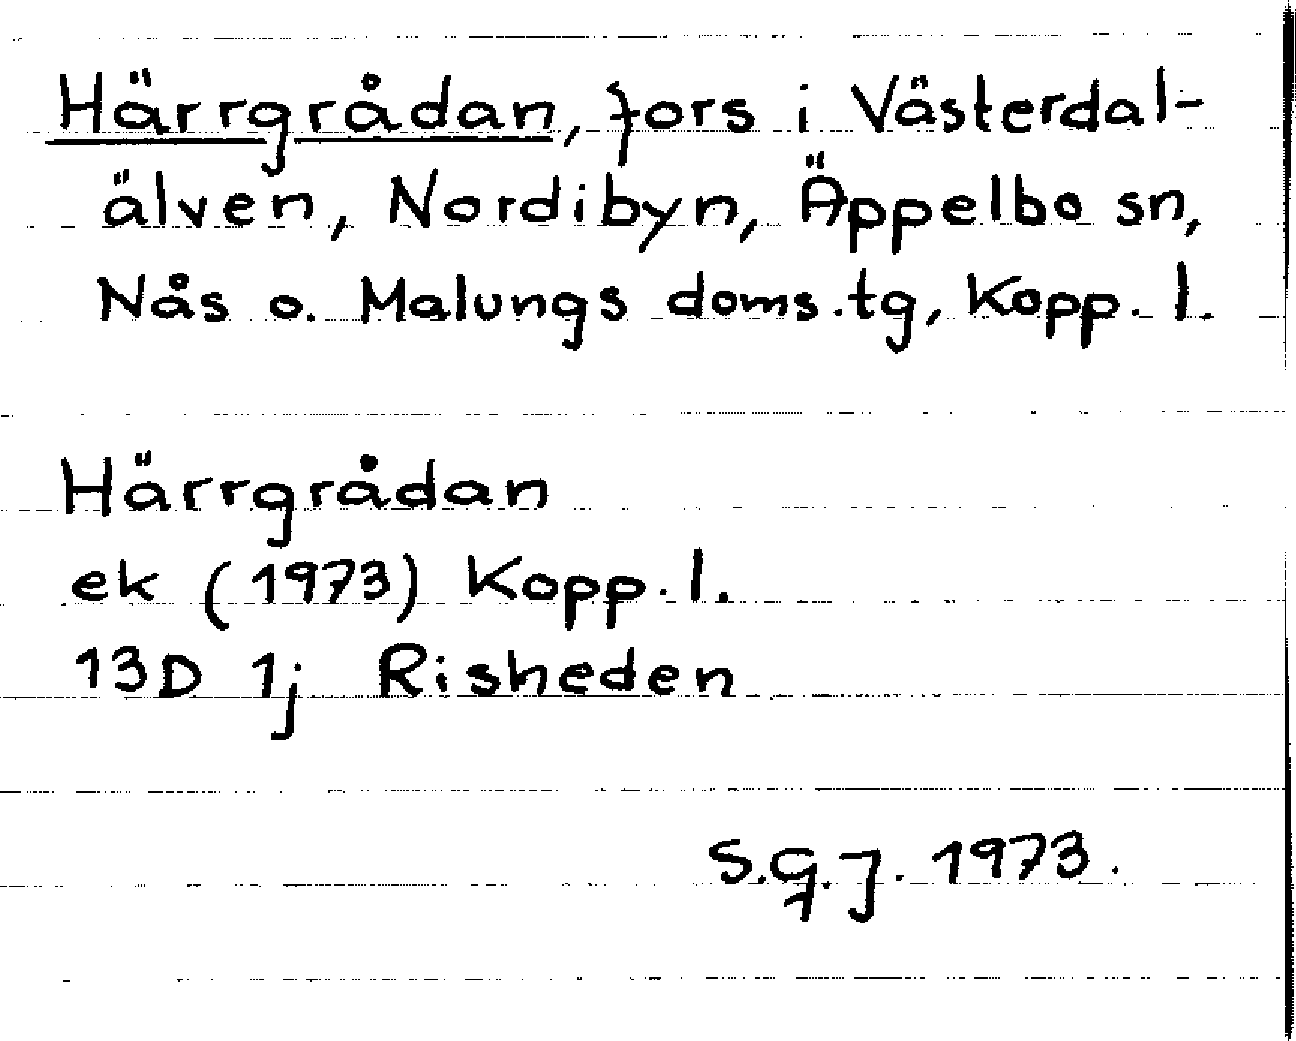 Härrgrådan, fors i Västerdal-
älven, Nordibyn, Äppelbo sn,
Nås o. Malungs doms.tg, Kopp. l.
Härrgrådan
ek (1973) Kopp. l.
13D 1j Risheden
S.G.J. 1973.